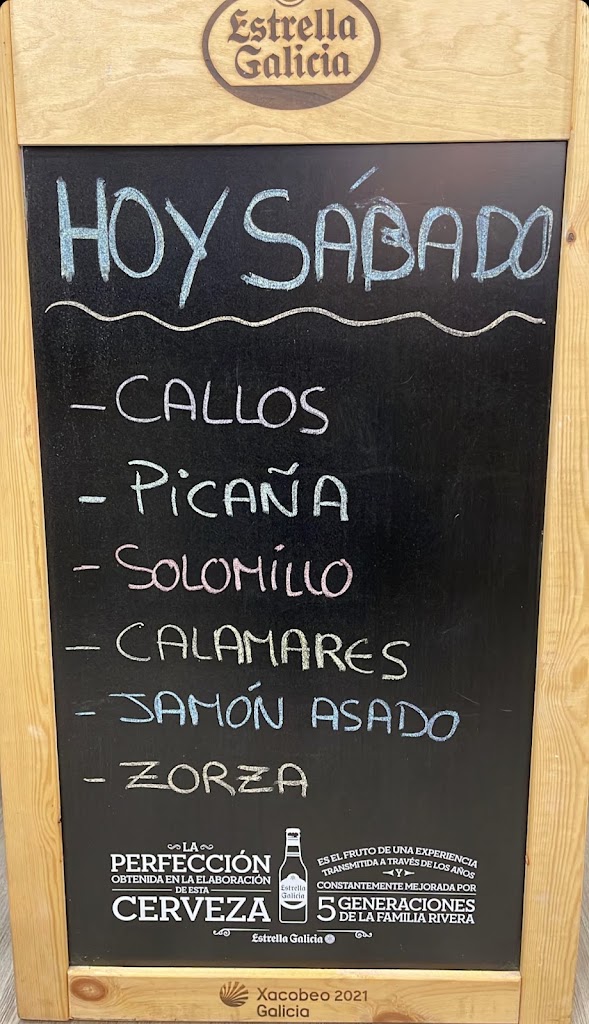 Estrella
Galicia
HOY SÁBADO
- CALLOS
- PiCAÑA
- SOLOMiLLO
- CALAMARES
- JAMÓN ASADO
- ZORZA
LA
PERFECCIÓN
OBTENIDA EN LA ELABORACIÓN
DE ESTA
CERVEZA
Estrella
Galicia
ES EL FRUTO DE UNA EXPERIENCIA
TRANSMITIDA A TRAVÉS DE LOS AÑOS
Y
CONSTANTEMENTE MEJORADA POR
5 GENERACIONES
DE LA FAMILIA RIVERA
Estrella Galicia
Xacobeo 2021
Galicia